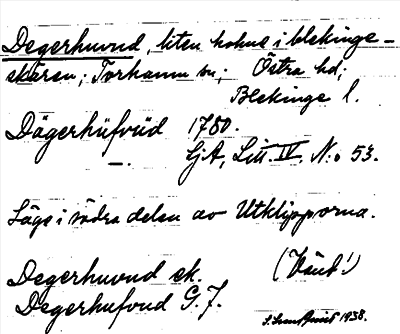 Degerhuvud, liten holme i blekinge-
skären; Torhamn sn; Östra hd;
Blekinge l.
Dägerhüfvüd 1780.
GA, Litt. IV. N:o 53.
Läge i södra delen av Utklipporna.
Degerhuvud sk. (Vänt!)
Degerhufvud G.J.
1938.